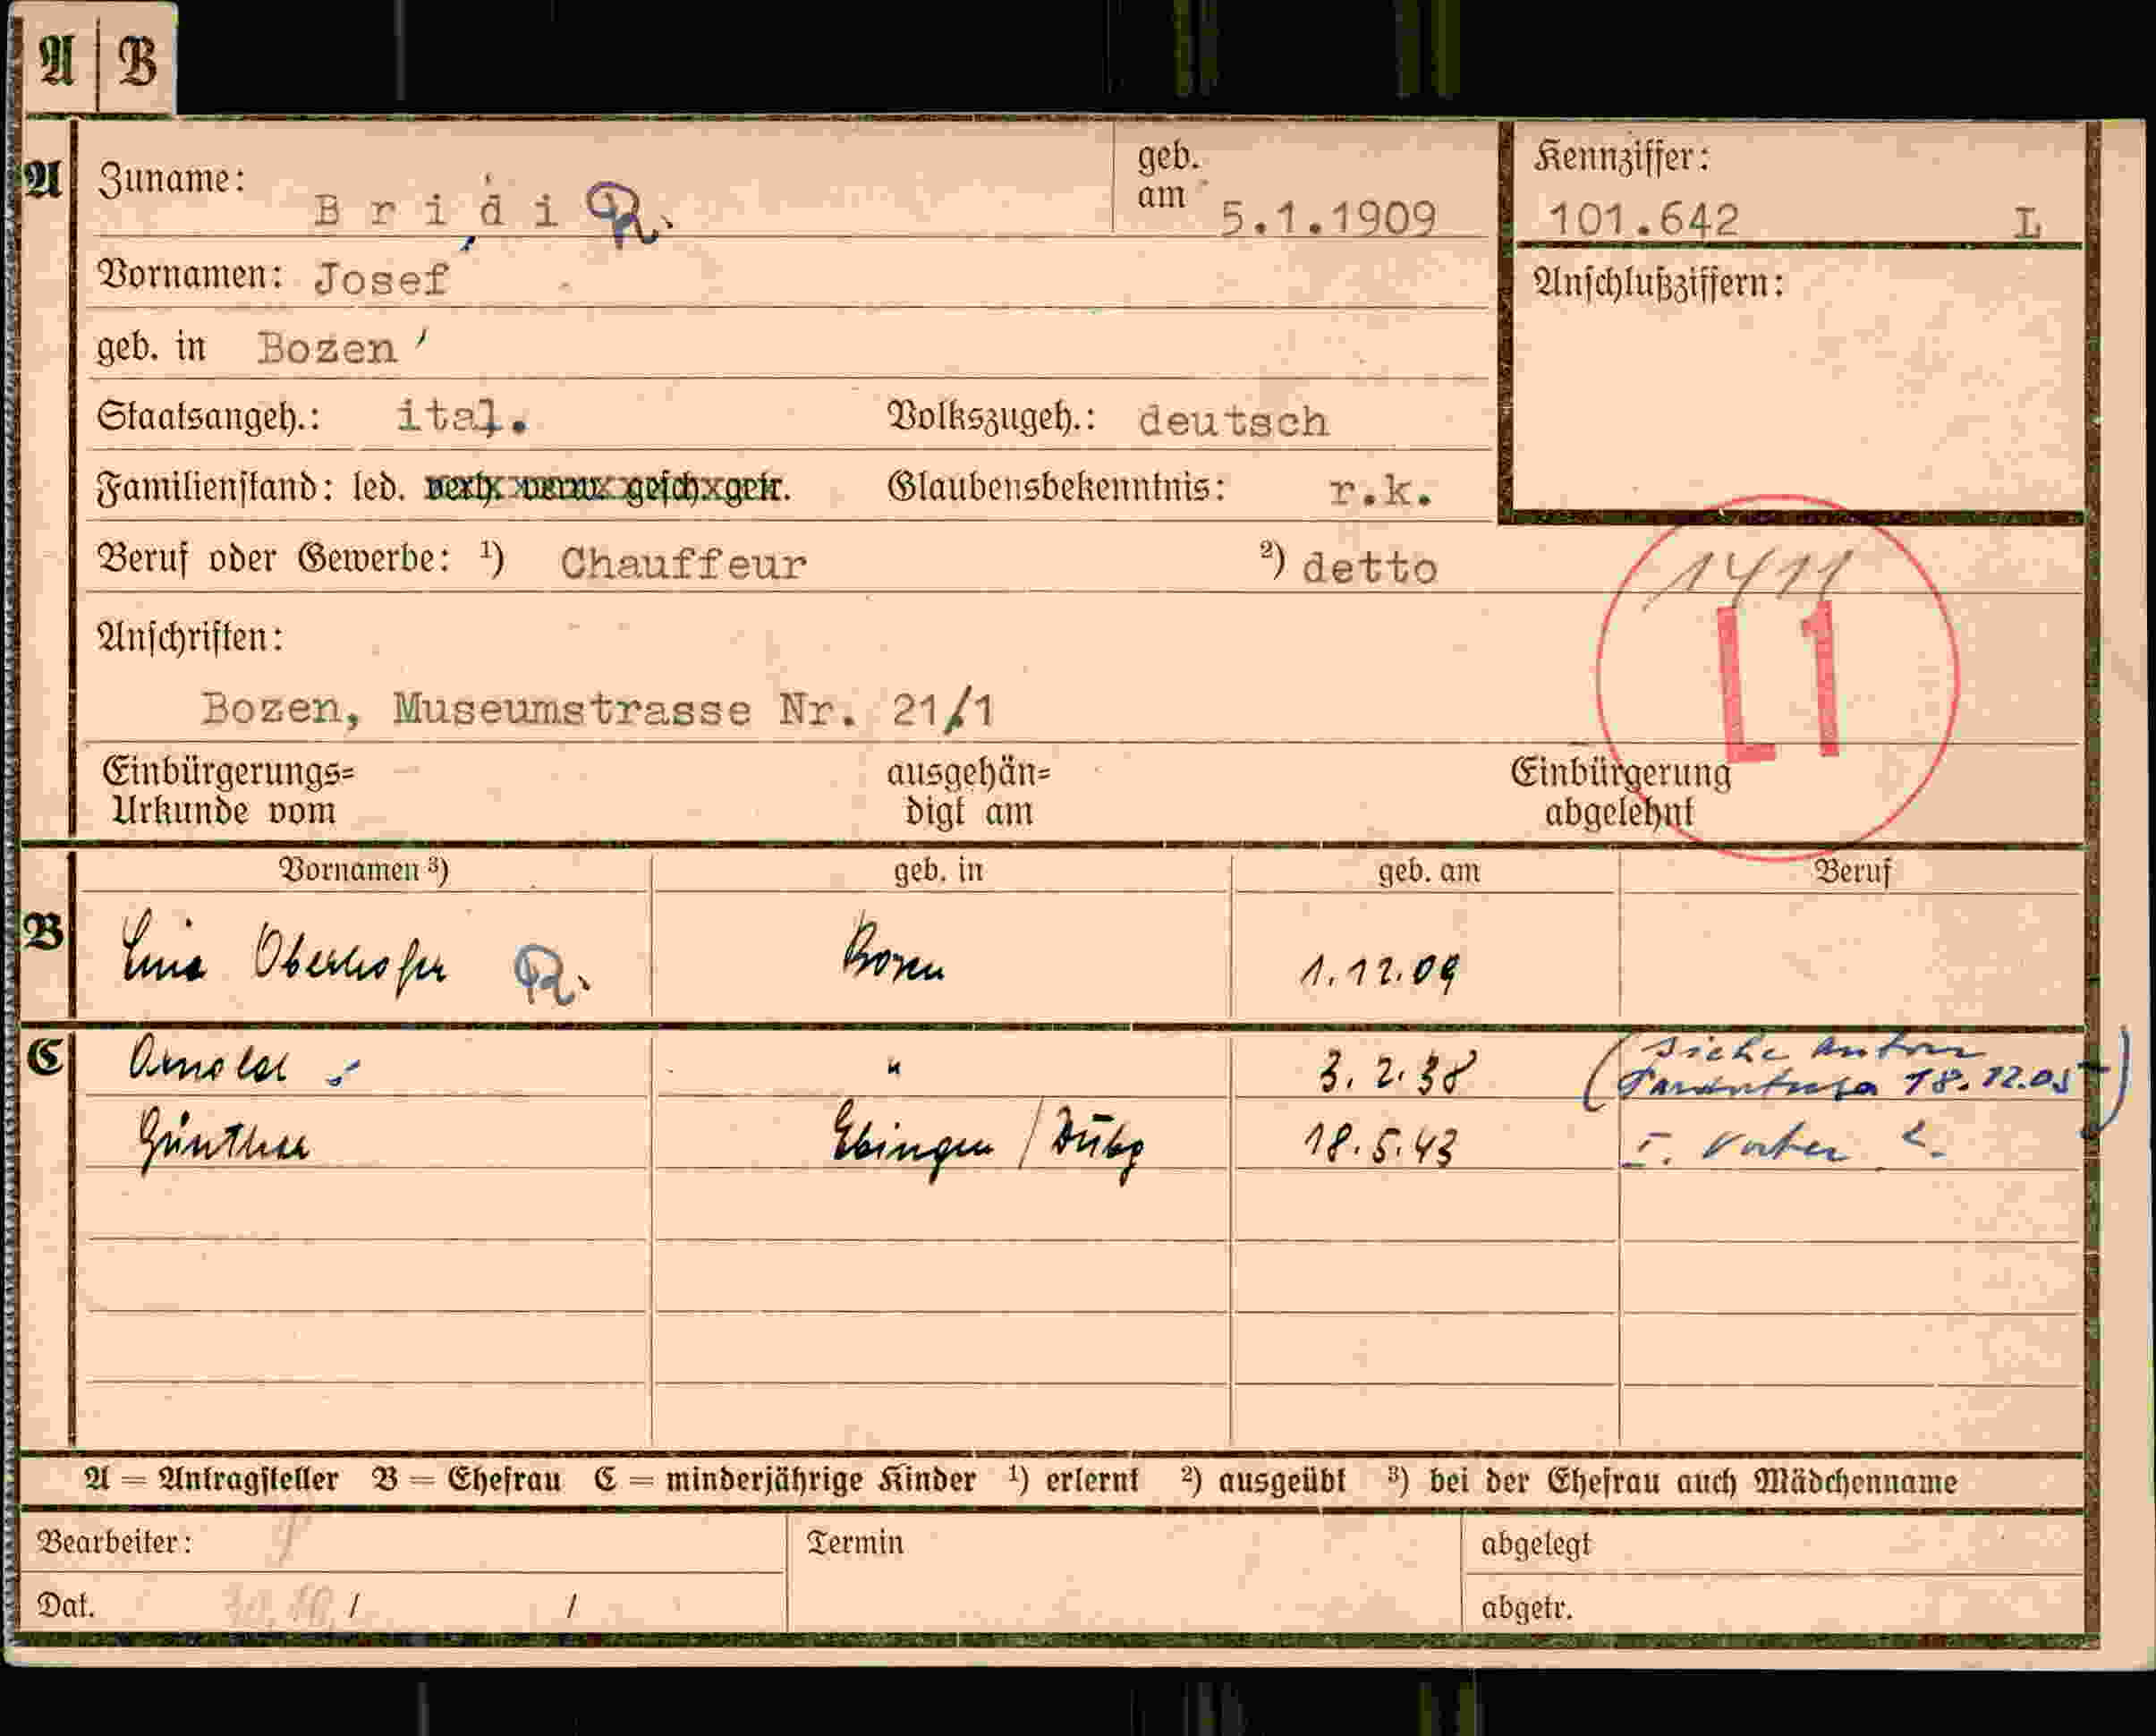 A | B
A Zuname: Bridi R. geb. am 5.1.1909 Kennziffer: 101.642 L
Vornamen: Josef Anschlußziffern:
geb. in Bozen
Staatsangeh.: ital. Volkszugeh.: deutsch
Familienstand: led. verh. verw. gesch. getr. Glaubensbekenntnis: r.k.
Beruf oder Gewerbe: ¹) Chauffeur ²) detto
1411
Anschriften:
L1
Bozen, Museumstrasse Nr. 21/1
Einbürgerungs= ausgehän= Einbürgerung
Urkunde vom digt am abgelehnt
Vornamen ³) geb. in geb. am Beruf
B Oberhofer R. Bozen 1.12.09
C Arnold " 3.2.38 (siehe Anton
18.12.05)
Günther Ebingen / 18.5.43
A = Antragsteller B = Ehefrau C = minderjährige Kinder ¹) erlernt ²) ausgeübt ³) bei der Ehefrau auch Mädchenname
Bearbeiter: Termin abgelegt
Dat. / / abgetr.